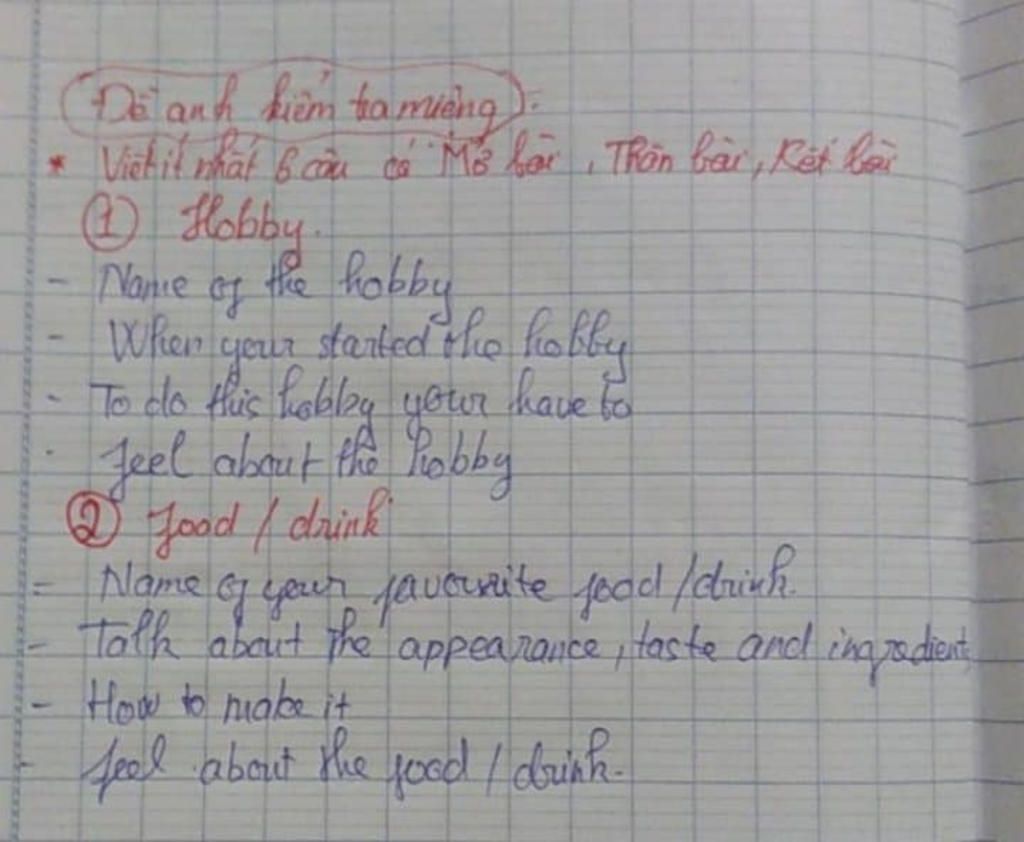 Đề anh kiểm tra miệng :
* Viết ít nhất 6 câu có Mở bài , Thân bài , Kết bài
① Hobby.
- Name of the hobby
- When your started the hobby
- To do this hobby your have to
- feel about the hobby
② food / drink
- Name of your favourite food / drink.
- Talk about the appearance , taste and ingredient
- How to make it
- feel about the food / drink.